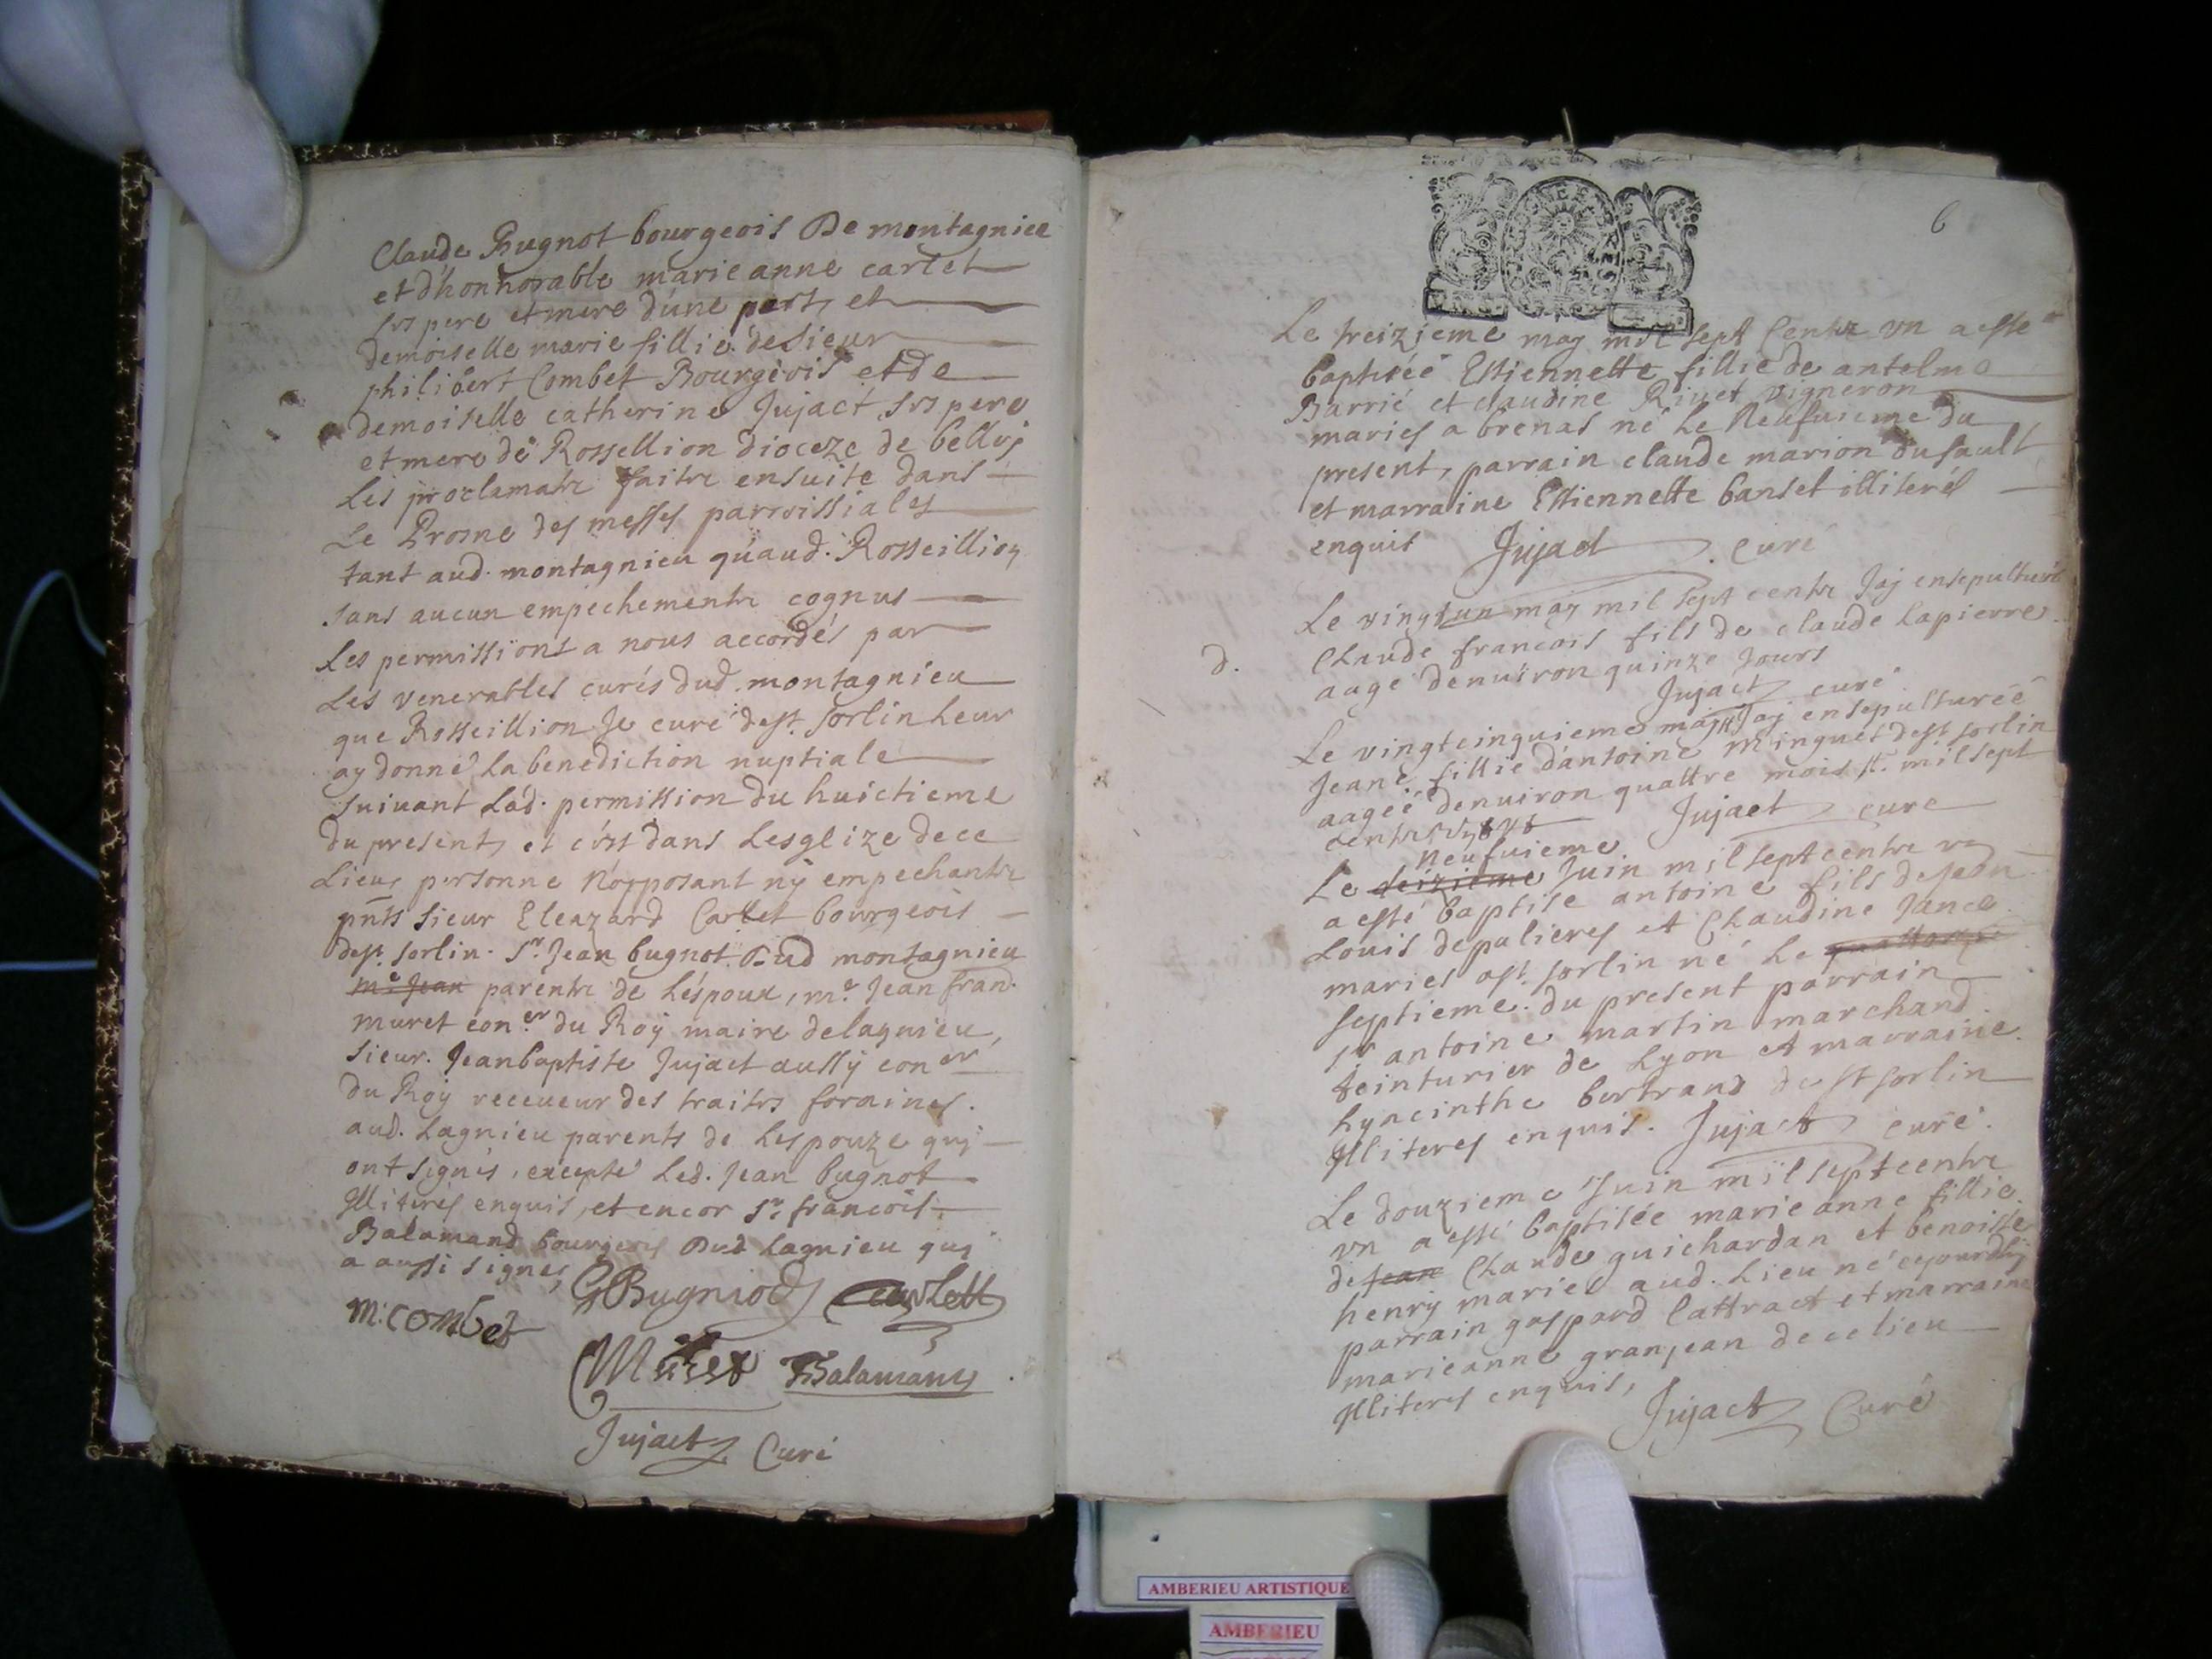 Claude Bugnot bourgeois De montagnieu
et d'honnorable marie anne cartet
ses pere et mere d'une part, et
demoiselle marie fillie de Sieur
philibert Combet Bourgeois et de
demoiselle catherine Jujact ses pere
et mere de Rossellion dioceze de belley
Les proclamatre faitre ensuite dans
Le Prosne des messes parroissiales
tant aud. montagnieu qu'aud. Rosseillion
sans aucun empechementre cognus
Les permissions a nous accordés par
Les venerables curés dud. montagnieu
que Rosseillion Je curé de st. sorlin leur
ay donné la benediction nuptiale
suivant Lad. permission du huictieme
du present, et c'est dans Lesglize de ce
Lieu, personne n'opposant ny empechantre
pnts sieur Eleazard Cartet bourgeois
de st. sorlin. Sr. Jean bugnot Dud montagnieu
me Jean parentre de L'espoux, me. Jean fran.
muret coner du Roy maire de lagnieu,
Sieur. Jean baptiste Jujact aussy coner
du Roy receveur des traites foraines.
aud. Lagnieu parents de Lespouze quj
ont signés, excepté Led. Jean bugnot
Illiteres enquis, et encor Sr. francois
Balamand bourgeois Dud Lagnieu quj
a aussi signes,
GBugniod Cartett
m: combet
Muret Balamand
Jujact Curé
6
Le treizieme may mil sept Centre un a esté
baptiséé Estiennette fillie de antelme
Barrié et claudine Rivet vigneron
mariés a brenas né Le Neufvieme du
present, parrain claude marion dusault
et marraine Estiennette banset illiterés
enquis Jujact Curé
Le vingt un may mil sept centre Jaj ensepulturé
d. Claude francois fils de claude Lapierre
aagé denviron quinze Jours
Jujact curé
Le vingtcinquieme may Jaj ensepulturéé
Jeane fillie d'antoine minguet de st sorlin
aagéé denviron quattre mois mil sept
centre
Jujact curé
neufvieme
Le Juin mil sept centre un
a esté baptise antoine fils de Jean
Louis depalieres et Claudine Jance
mariés a st. sorlin né Le quattorze
septieme. du present parrain
sr antoine martin marchand
teinturier de Lyon et marraine
hyacinthe bertrand de st sorlin
Illiteres enquis. Jujact curé.
Le douzieme Juin mil sept centre
un a esté baptisée marie anne fillie
de Jean Claude guichardan et benoiste
henry mariés aud. Lieu né cejourdhuy
parrain gaspard Lattract et marraine
marieanne granjean de ce lieu
Illiteres enquis,
Jujact Curé
AMBERIEU ARTISTIQUE
AMBERIEU